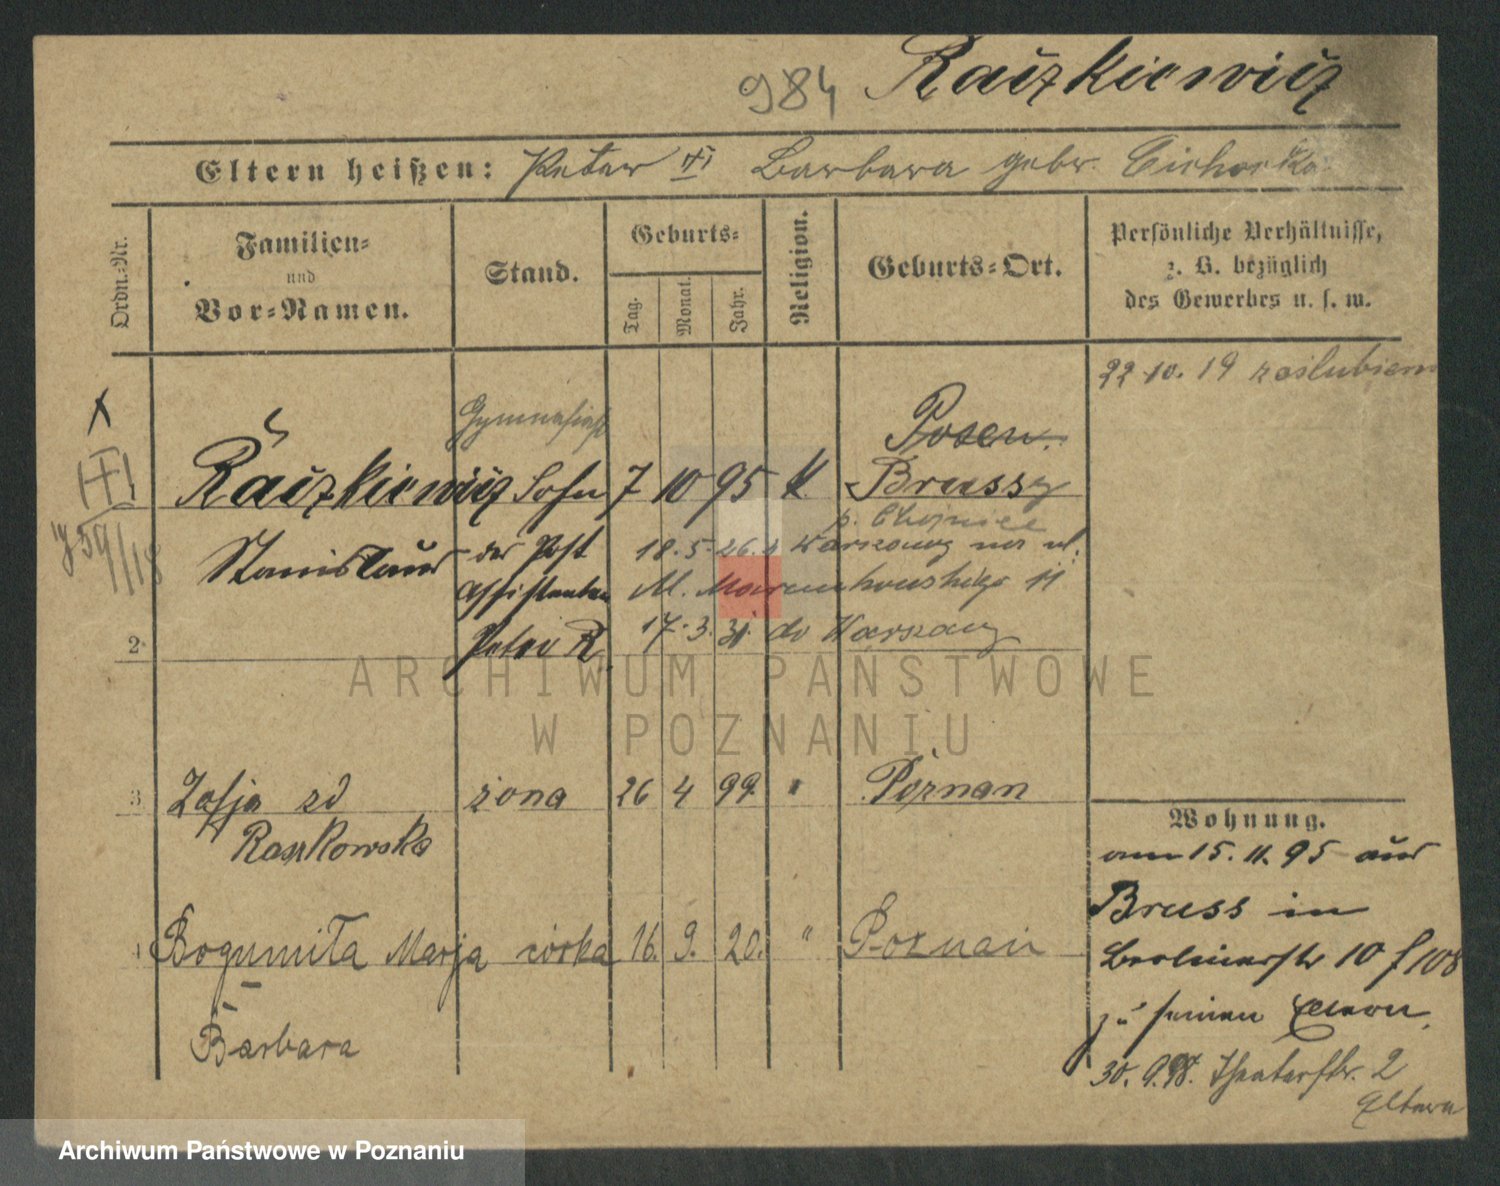 984 Raczkiewicz
Eltern heißen: Peter III Barbara gebr. Cichocka
Ordn.-Nr.
Familien-
und
Vor-Namen.
Stand.
Geburts-
Tag.
Monat.
Jahr.
Religion.
Geburts-Ort.
Persönliche Verhältnisse,
z. B. bezüglich
des Gewerbes u. s. w.
22 10. 19
Gymnasiast
Posen.
Raczkiewicz Sohn 7 10 95 K. Brussy
p. Chojnice
Stanislaus der Post 18. 5. 26. Warszawy na ul.
Assistenten M. 11
2 Peter R. 17. 3. 31. do Warszawy
ARCHIWUM PAŃSTWOWE
W POZNANIU
3 Zofja zd żona 26 4 99 " Poznań
Raszkowska
Bogumiła Marja córka 16. 9. 20. " Poznań
Barbara
Wohnung.
am 15. 11. 95 aus
Bruss in
Berlinerstr 10 f 108
zu seinen Eltern.
30. 9. 98. Theaterstr. 2
Eltern
Archiwum Państwowe w Poznaniu